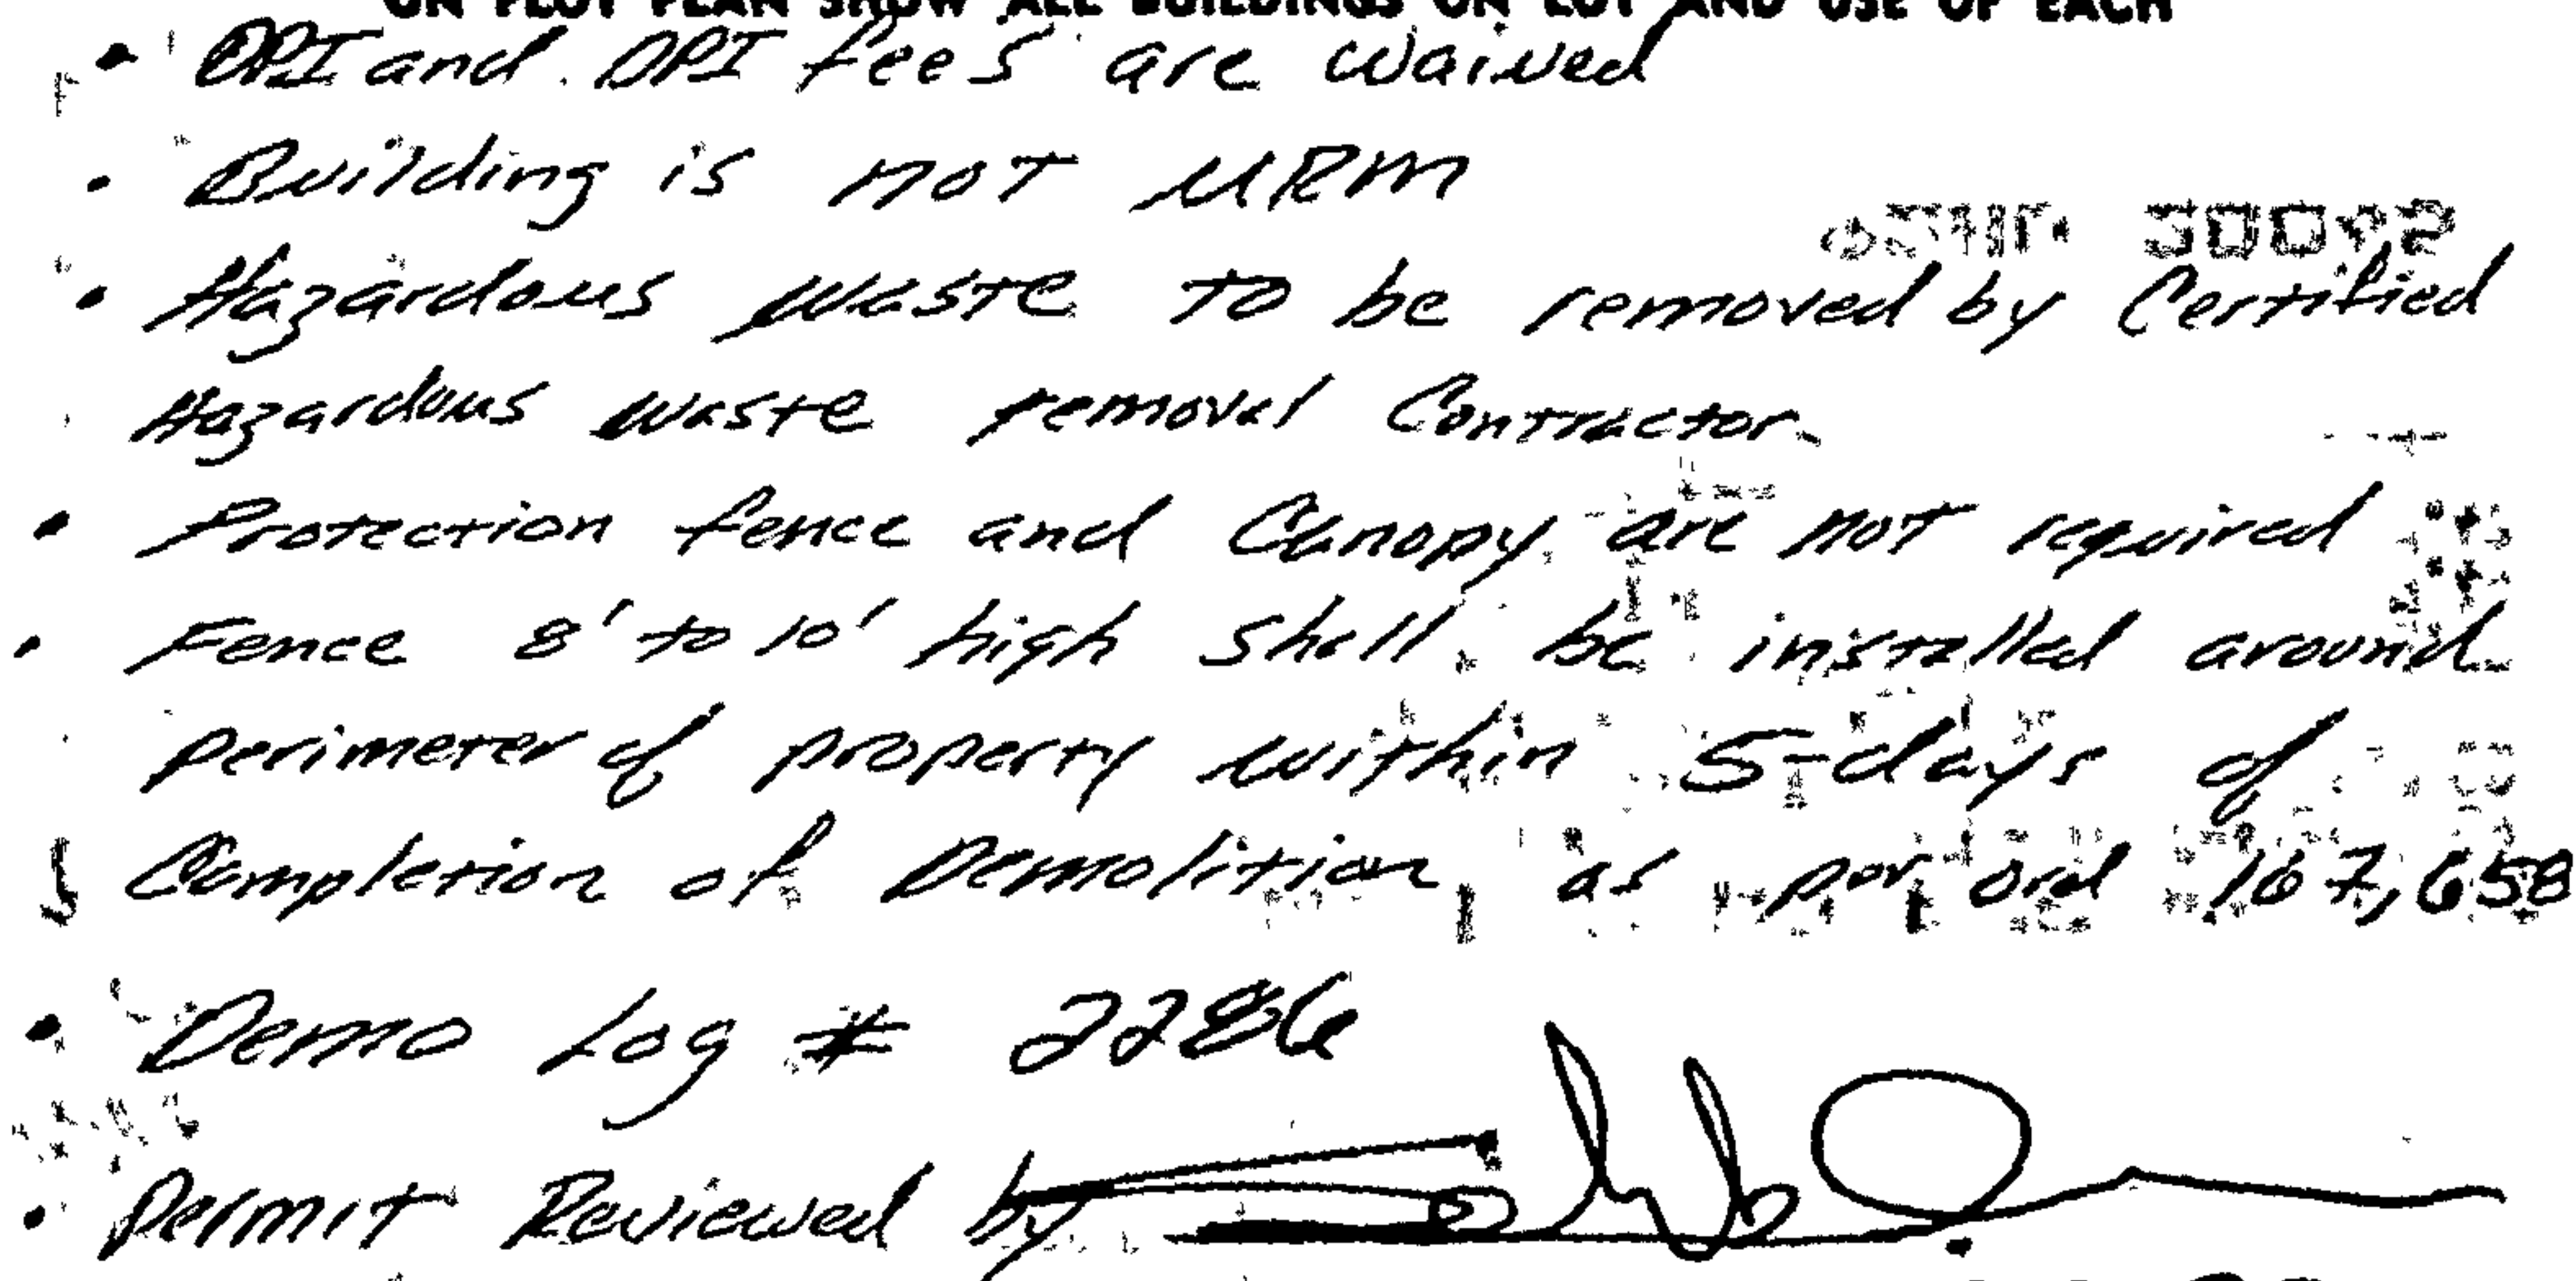 ON PLOT PLAN SHOW ALL BUILDINGS ON LOT AND USE OF EACH
• OPI and DPI fees are waived
• Building is not URM
• Hazardous waste to be removed by Certified
Hazardous waste removal Contractor.
• Protection fence and Canopy are not required
• Fence 8' to 10' high shall be installed around
perimeter of property within 5-days of
Completion of Demolition as per ord 167,658
• Demo Log # 2286
• Permit Reviewed by